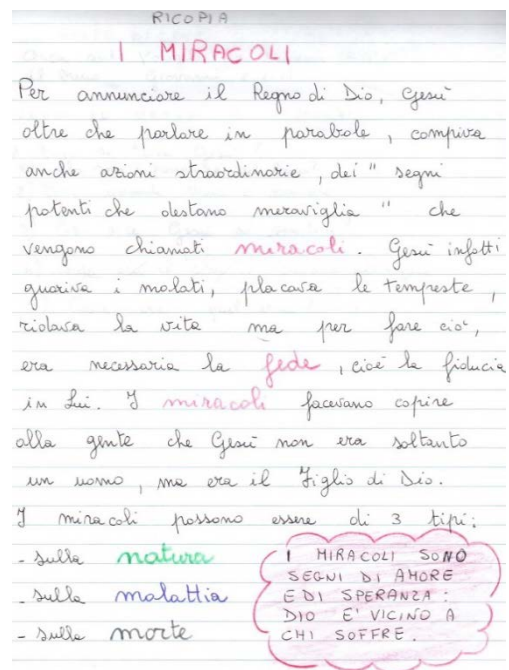 RICOPIA
I MIRACOLI
Per annunciare il Regno di Dio, Gesù
oltre che parlare in parabole, compiva
anche azioni straordinarie, dei "segni
potenti che destano meraviglia" che
vengono chiamati miracoli. Gesù infatti
guariva i malati, placava le tempeste,
ridava la vita ma per fare ciò,
era necessaria la fede, cioè la fiducia
in Lui. I miracoli facevano capire
alla gente che Gesù non era soltanto
un uomo, ma era il Figlio di Dio.
I miracoli possono essere di 3 tipi:
- sulla natura
- sulla malattia
- sulla morte
I MIRACOLI SONO
SEGNI DI AMORE
E DI SPERANZA:
DIO E' VICINO A
CHI SOFFRE.